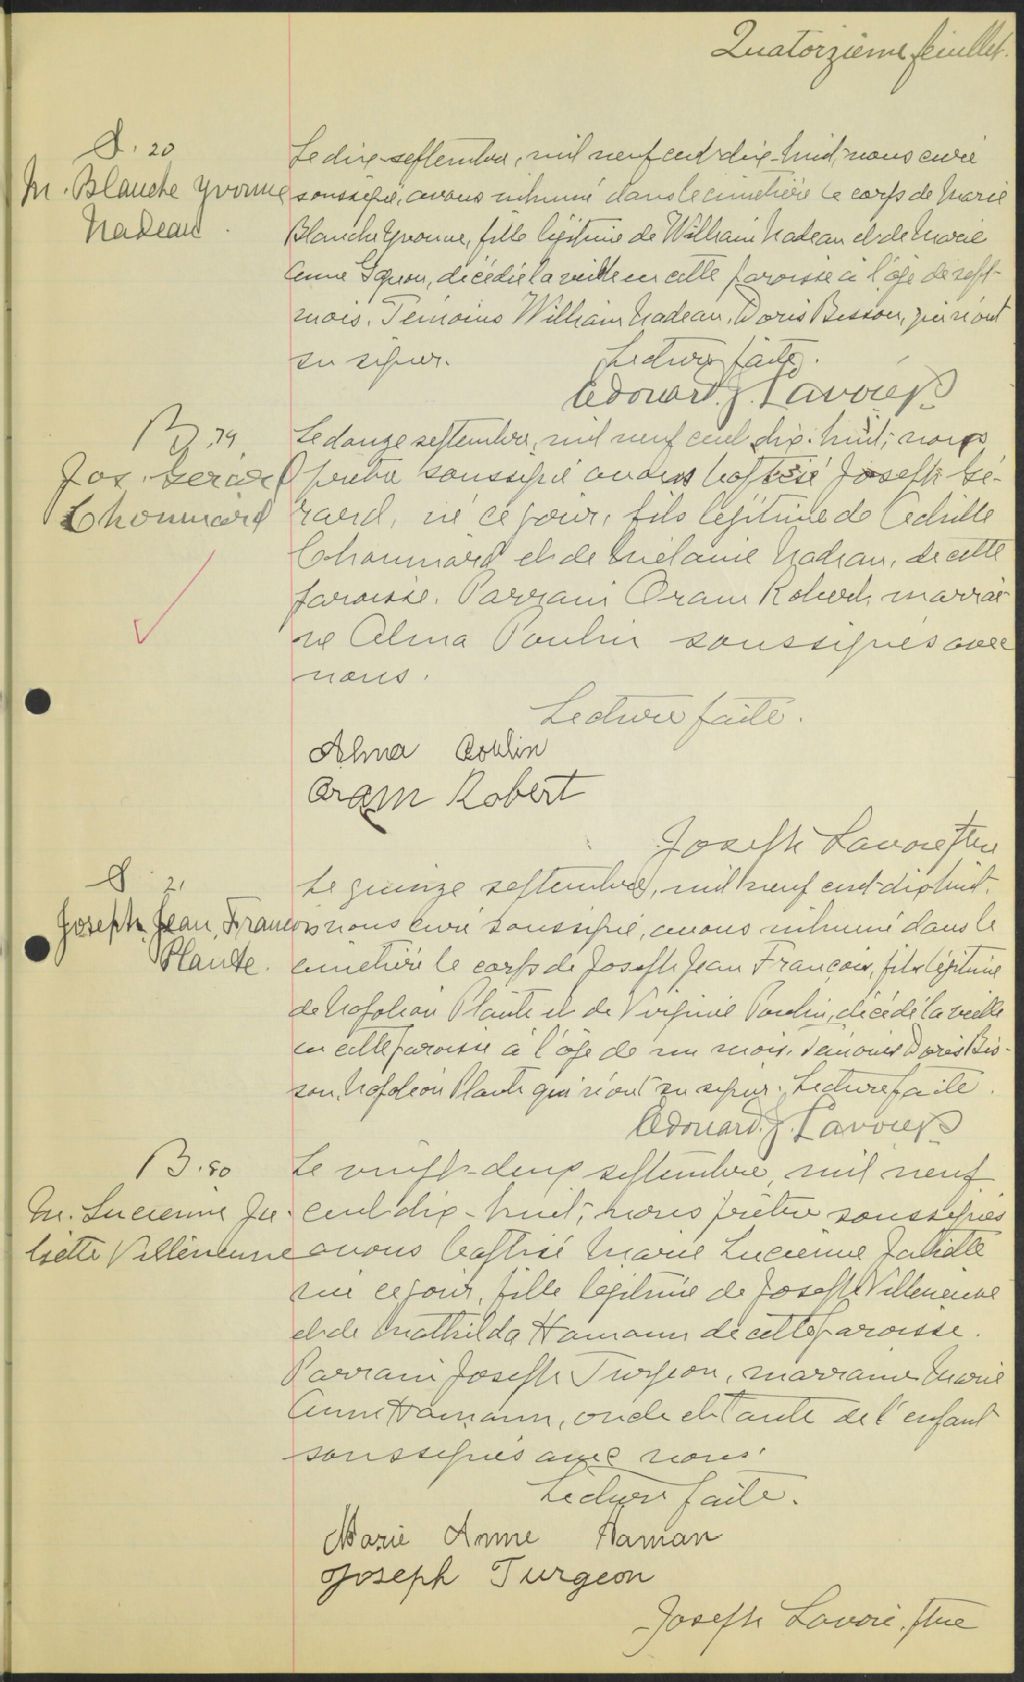 Quatorzième feuillet.
S. 20
M. Blanche Yvonne
Nadeau.
Le dix septembre, mil neuf cent dix-huit, nous curé
soussigné, avons inhumé dans le cimetière le corps de Marie
Blanche Yvonne, fille légitime de William Nadeau et de Marie
Anne, décédée la veille en cette paroisse à l'âge de sept
mois. Témoins William Nadeau, Doris Bisson, qui n'ont
su signer. Lecture faite.
Edouard J. Lavoie Ptre
B. 79
Jos. Gérard
Chouinard
Le douze septembre, mil neuf cent dix-huit, nous
prêtre soussigné avons baptisé Joseph Gé-
rard, né ce jour, fils légitime de Cédulle
Chouinard et de Mélanie Nadeau, de cette
paroisse. Parrain Oram Robert, marrai-
ne Alma Poulin soussignés avec
nous.
Lecture faite.
Alma Poulin
Oram Robert
Joseph Lavoie Ptre
S. 21
Joseph Jean François
Plante.
Le quinze septembre, mil neuf cent dix huit,
nous curé soussigné, avons inhumé dans le
cimetière le corps de Joseph Jean François, fils légitime
de Napoléon Plante et de Virginie Poulin, décédé la veille
en cette paroisse à l'âge de un mois. Témoins Doris Bis-
son, Napoléon Plante qui n'ont su signer. Lecture faite.
Edouard J. Lavoie Ptre
B. 80
M. Lucienne Ju-
liette Villeneuve
Le vingt-deux septembre, mil neuf
cent dix-huit, nous prêtre soussignés
avons baptisé Marie Lucienne Juliette
née ce jour, fille légitime de Joseph Villeneuve
et de Mathilda Hamann de cette paroisse.
Parrain Joseph Turgeon, marraine Marie
Anne Hamann, oncle et tante de l'enfant
soussignés avec nous.
Lecture faite.
Marie Anne Haman
Joseph Turgeon
Joseph Lavoie, Ptre